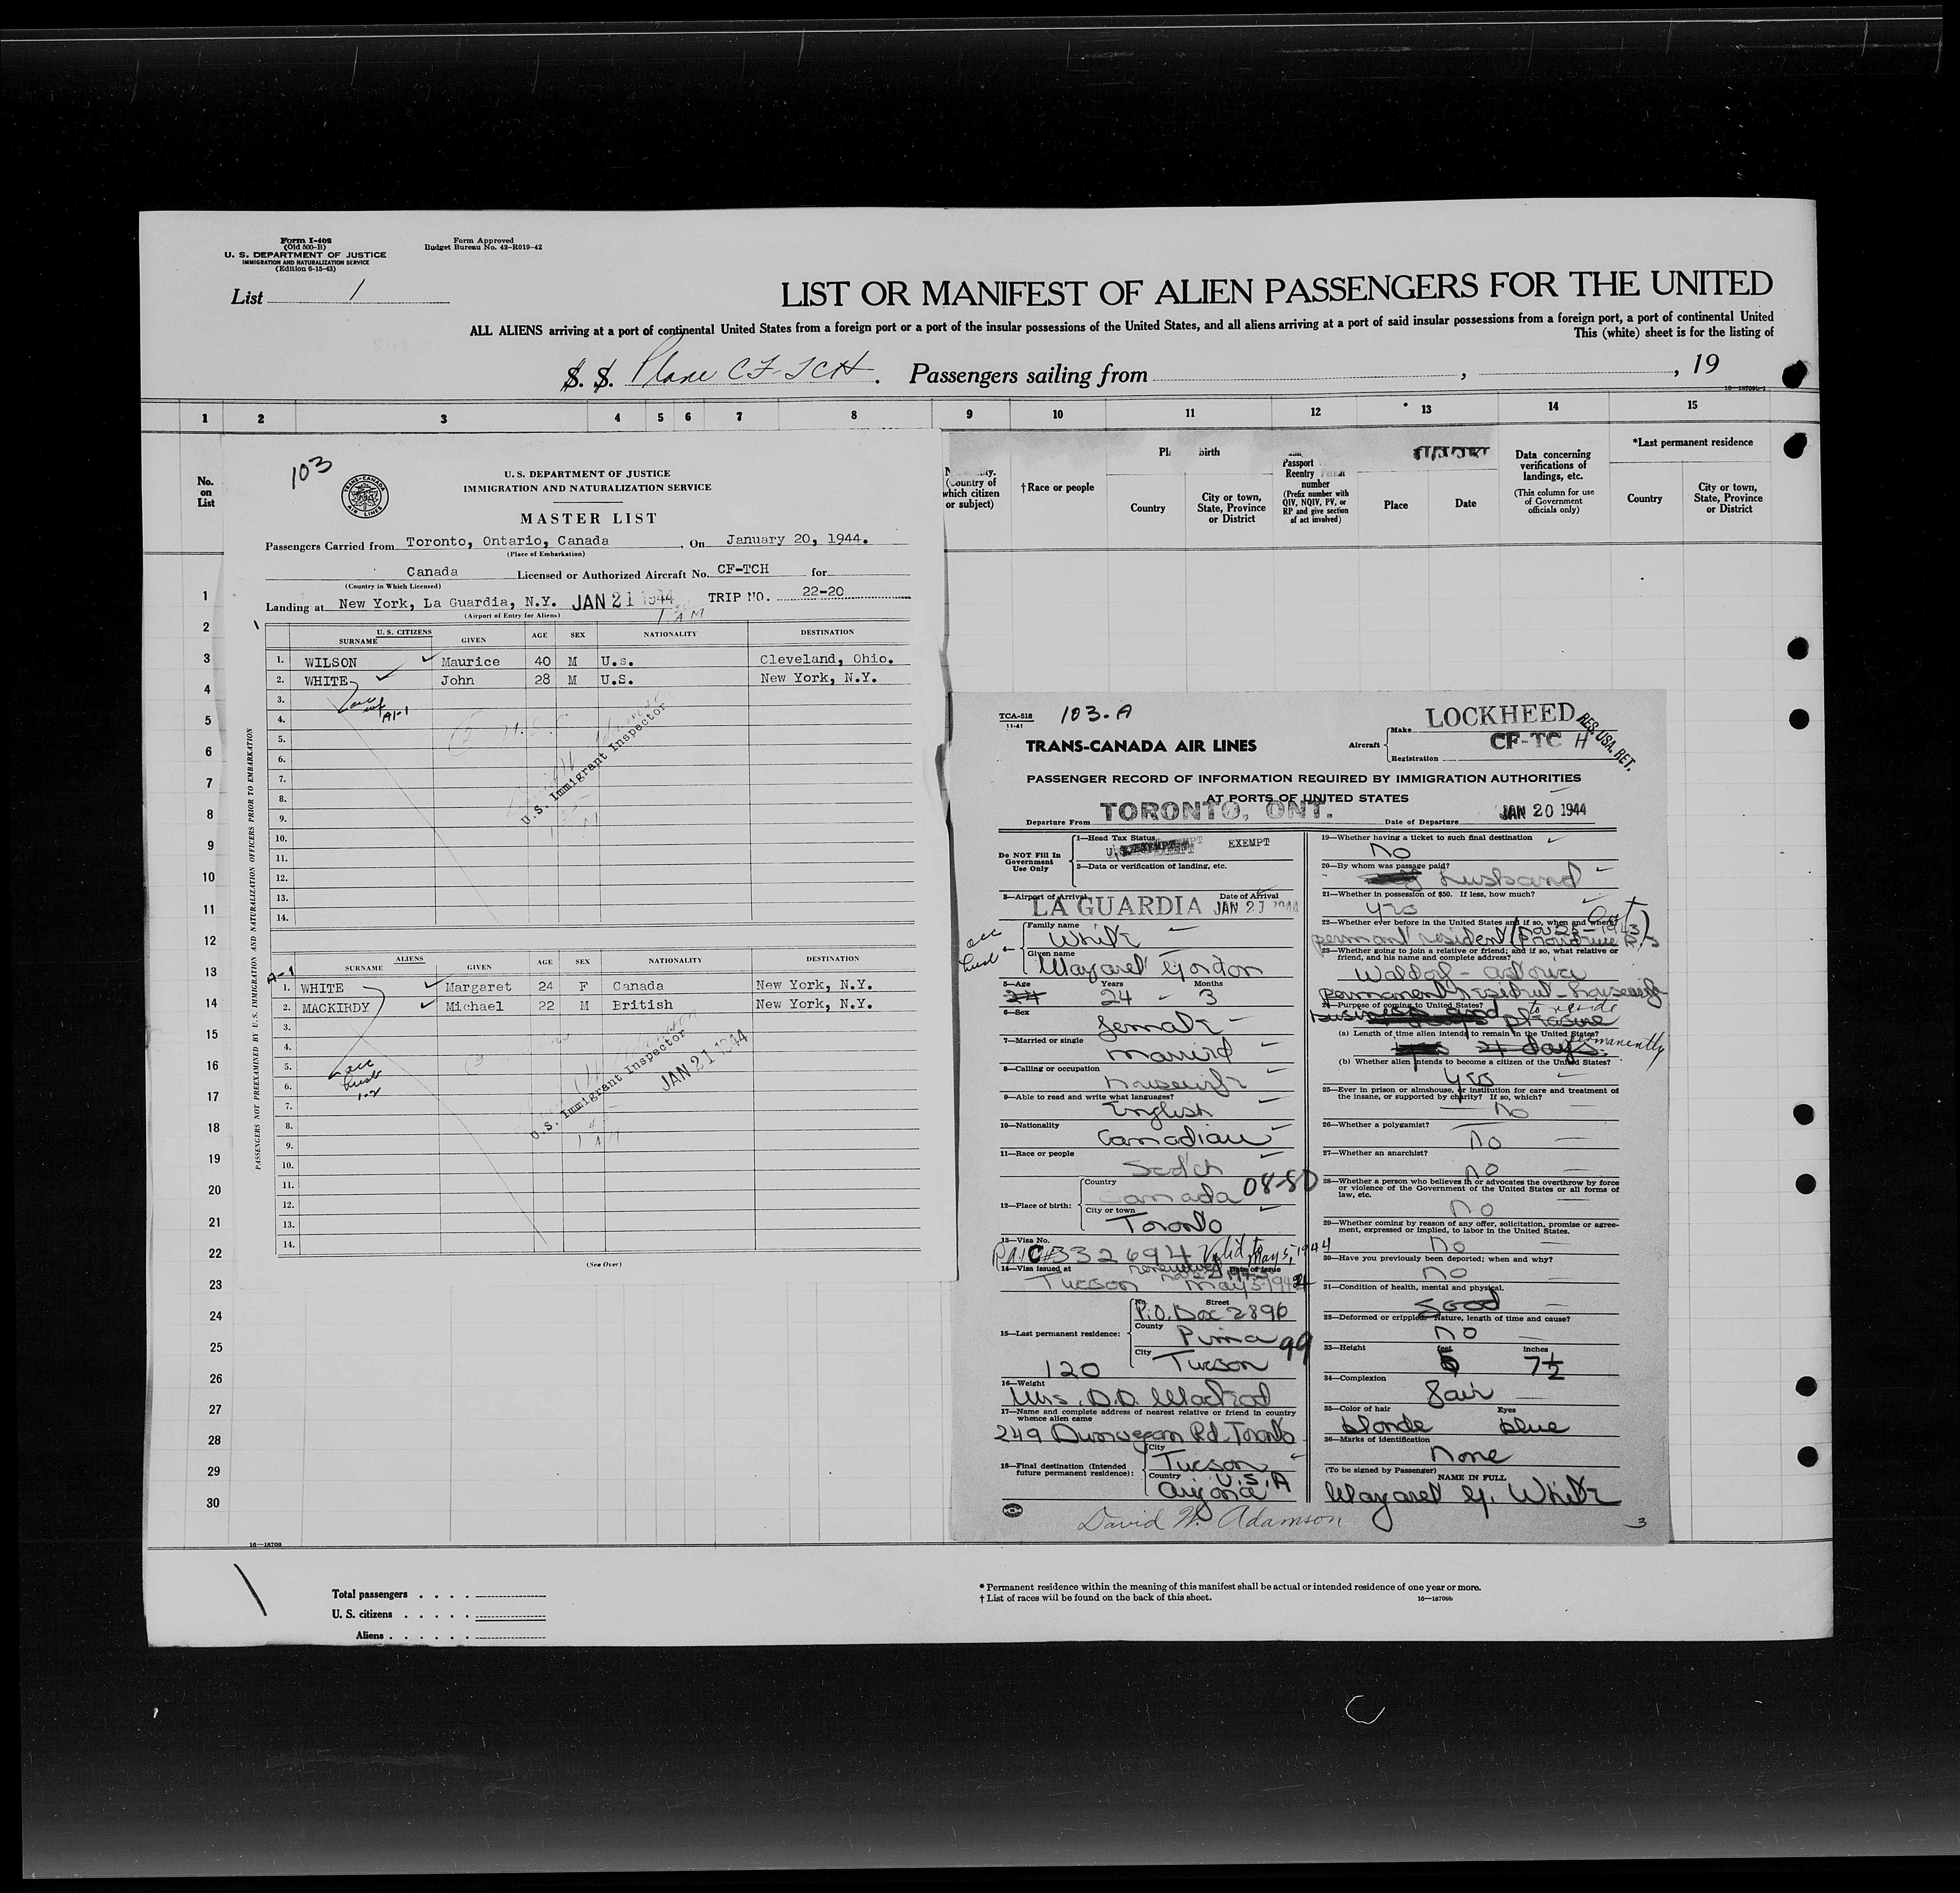 Form I-402
(Old 500-B)
U. S. DEPARTMENT OF JUSTICE
IMMIGRATION AND NATURALIZATION SERVICE
(Edition 6-15-43)
Form Approved
Budget Bureau No. 43-R019-42
List 1
LIST OR MANIFEST OF ALIEN PASSENGERS FOR THE UNITED
ALL ALIENS arriving at a port of continental United States from a foreign port or a port of the insular possessions of the United States, and all aliens arriving at a port of said insular possessions from a foreign port, a port of continental United
This (white) sheet is for the listing of
S. S. Plane CF-TCH. Passengers sailing from , , 19
1 2 3 4 5 6 7 8 9 10 11 12 13 14 15
No. on List
103
TRANS-CANADA AIR LINES
U. S. DEPARTMENT OF JUSTICE
IMMIGRATION AND NATURALIZATION SERVICE
MASTER LIST
Passengers Carried from Toronto, Ontario, Canada, On January 20, 1944.
(Place of Embarkation)
Canada Licensed or Authorized Aircraft No. CF-TCH for
(Country in Which Licensed)
Landing at New York, La Guardia, N.Y. JAN 21 1944 TRIP NO. 22-20
(Airport of Entry for Aliens)
1 AM
U. S. CITIZENS
SURNAME GIVEN AGE SEX NATIONALITY DESTINATION
1. WILSON Maurice 40 M U.s. Cleveland, Ohio.
2. WHITE John 28 M U.S. New York, N.Y.
3.
4.
5.
6.
7.
8.
9.
10.
11.
12.
13.
14.
acc wf A1-1
U.S. Immigrant Inspector
PASSENGERS NOT PREEXAMINED BY U. S. IMMIGRATION AND NATURALIZATION OFFICERS PRIOR TO EMBARKATION
ALIENS
SURNAME GIVEN AGE SEX NATIONALITY DESTINATION
A-1
1. WHITE Margaret 24 F Canada New York, N.Y.
2. MACKIRDY Michael 22 M British New York, N.Y.
3.
4.
5.
6.
7.
8.
9.
10.
11.
12.
13.
14.
acc husb 1-2
U.S. Immigrant Inspector
JAN 21 1944
1 AM
(See Over)
1
2
3
4
5
6
7
8
9
10
11
12
13
14
15
16
17
18
19
20
21
22
23
24
25
26
27
28
29
30
(Country of which citizen or subject)
†Race or people
birth
Country
City or town, State, Province or District
Passport
Reentry
number
(Prefix number with QIV, NQIV, PV, or RP and give section of act involved)
Place
Date
Data concerning verifications of landings, etc.
(This column for use of Government officials only)
*Last permanent residence
Country
City or town, State, Province or District
TCA-518
11-41
103-A
TRANS-CANADA AIR LINES
Aircraft Make LOCKHEED
Registration CF-TC H
RES. USA. RET.
PASSENGER RECORD OF INFORMATION REQUIRED BY IMMIGRATION AUTHORITIES
AT PORTS OF UNITED STATES
Departure From TORONTO, ONT. Date of Departure JAN 20 1944
Do NOT Fill In Government Use Only
1—Head Tax Status EXEMPT
2—Data or verification of landing, etc.
3—Airport of Arrival LA GUARDIA Date of Arrival JAN 21 1944
acc husb
Family name White
Given name Margaret Gordon
5—Age 24 Years 24 Months 3
6—Sex female
7—Married or single married
8—Calling or occupation housewife
9—Able to read and write what languages? English
10—Nationality Canadian
11—Race or people Scotch
12—Place of birth: Country Canada 08-80
City or town Toronto
13—Visa No. C#332694 Valid to May 5, 1944
14—Visa issued at Tucson Date of issue
15—Last permanent residence: No. Street P.O. Box 2896
County Pima 99
City Tucson
120
16—Weight
Mrs. D.D.
17—Name and complete address of nearest relative or friend in country whence alien came
249 Dunvegan Rd. Toronto
18—Final destination (Intended future permanent residence): City Tucson
Country U.S.A
Arizona
19—Whether having a ticket to such final destination
no
20—By whom was passage paid?
husband
21—Whether in possession of $50. If less, how much?
yes
22—Whether ever before in the United States and if so, when and where?
permanent resident (Nov 25-1943)
23—Whether going to join a relative or friend; and if so, what relative or friend, and his name and complete address?
Waldorf-Astoria
permanent resident - housewife
24—Purpose of coming to United States?
to reside
business and pleasure
(a) Length of time alien intends to remain in the United States?
21 days permanently
(b) Whether alien intends to become a citizen of the United States?
yes
25—Ever in prison or almshouse, or institution for care and treatment of the insane, or supported by charity? If so, which?
no
26—Whether a polygamist?
no
27—Whether an anarchist?
no
28—Whether a person who believes in or advocates the overthrow by force or violence of the Government of the United States or all forms of law, etc.
no
29—Whether coming by reason of any offer, solicitation, promise or agreement, expressed or implied, to labor in the United States.
no
30—Have you previously been deported; when and why?
no
31—Condition of health, mental and physical.
good
32—Deformed or crippled. Nature, length of time and cause?
no
33—Height feet 5 inches 7½
34—Complexion fair
35—Color of hair blonde Eyes blue
36—Marks of identification
none
(To be signed by Passenger) NAME IN FULL
Margaret G. White
David W. Adamson
3
16—18709
Total passengers
U. S. citizens
Aliens
* Permanent residence within the meaning of this manifest shall be actual or intended residence of one year or more.
† List of races will be found on the back of this sheet.
16—18709b